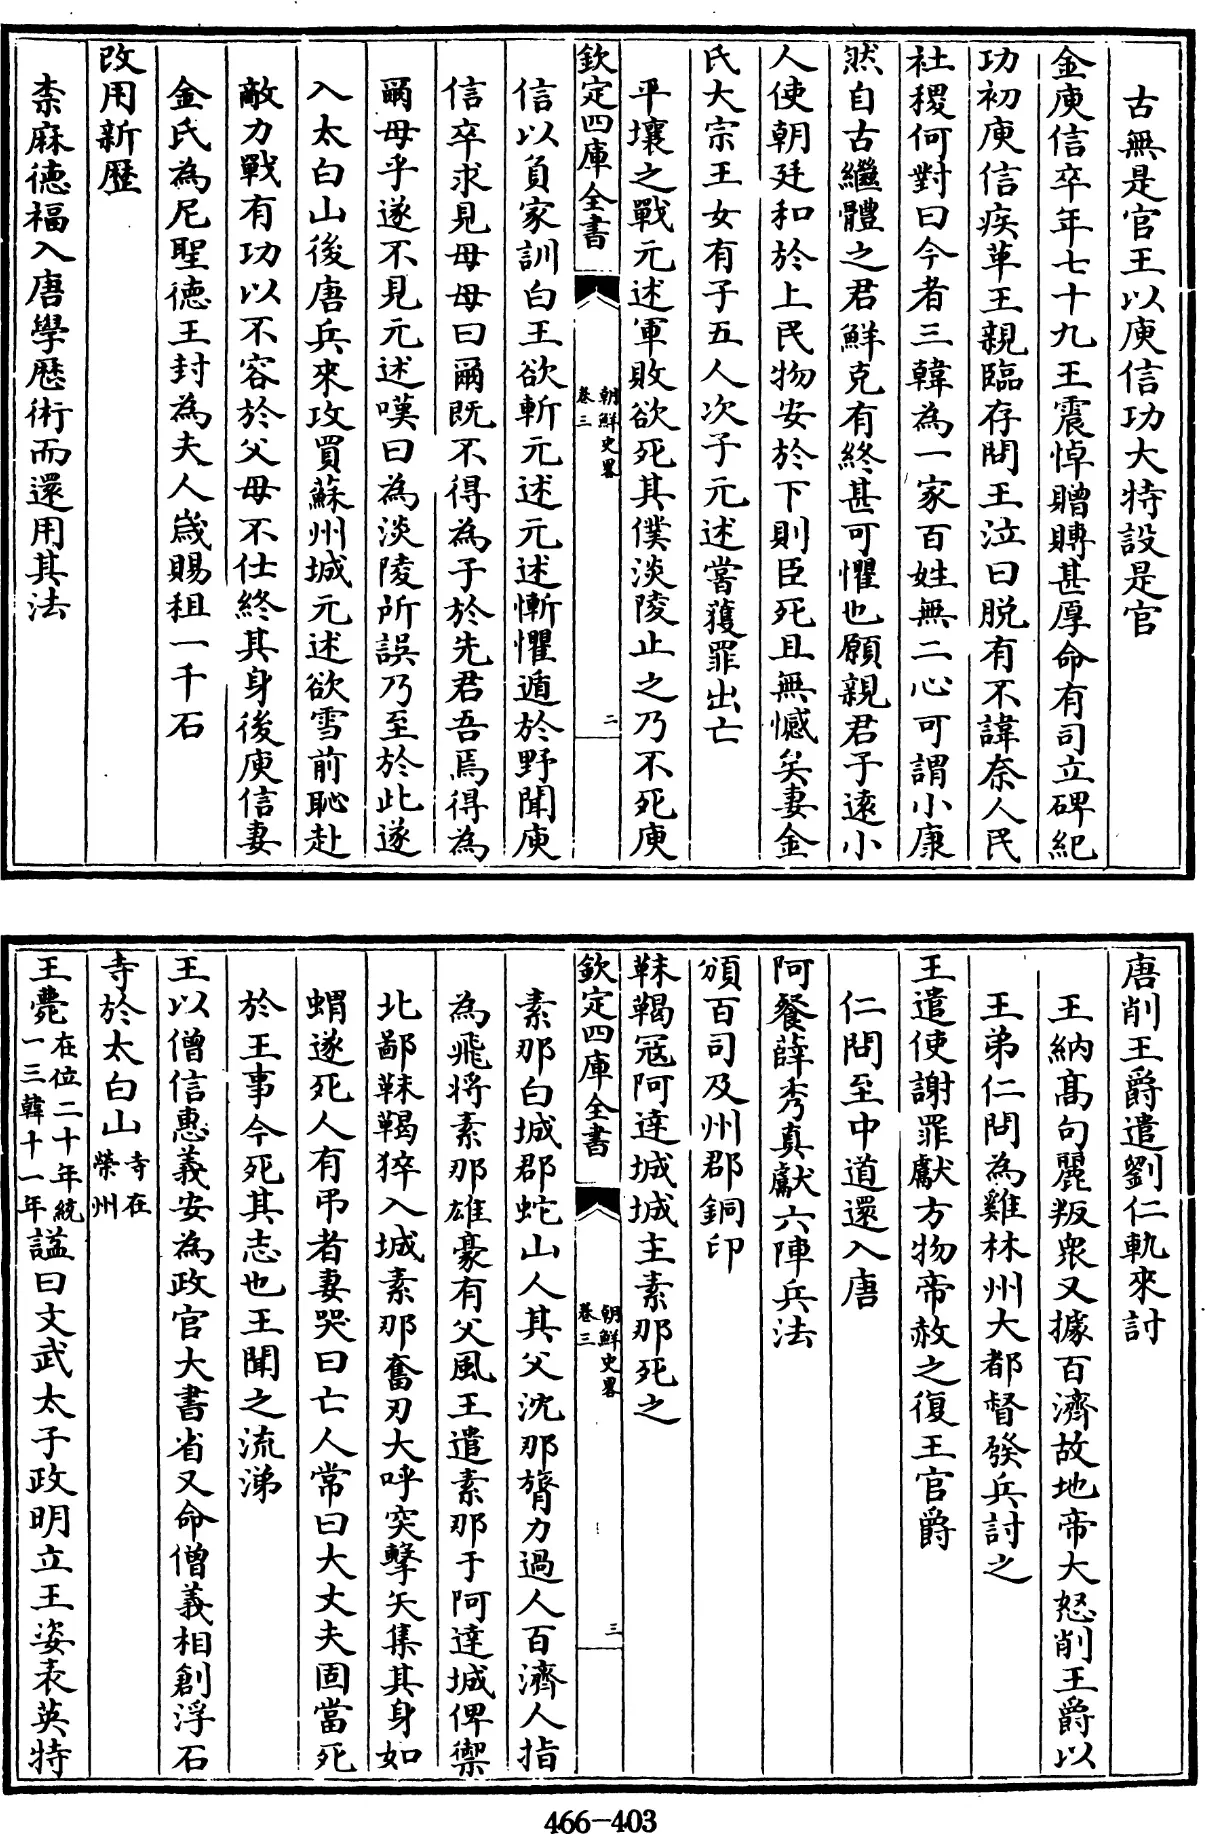 古無是官王以庾信功大特設是官
金庾信卒年七十九王震悼贈賻甚厚命有司立碑紀
功初庾信疾革王親臨存問王泣曰脱有不諱奈人民
社稷何對曰今者三韓為一家百姓無二心可謂小康
然自古繼體之君鮮克有終甚可懼也願親君子逺小
人使朝廷和於上民物安於下則臣死且無憾矣妻金
氏大宗王女有子五人次子元述嘗獲罪出亡
平壤之戰元述軍敗欲死其僕淡陵止之乃不死庾
欽定四庫全書
朝鮮史畧
卷三
二
信以負家訓白王欲斬元述元述慚懼遁於野聞庾
信卒求見母母曰爾既不得為子於先君吾焉得為
爾母乎遂不見元述嘆曰為淡陵所誤乃至於此遂
入太白山後唐兵來攻買蘇州城元述欲雪前恥赴
敵力戰有功以不容於父母不仕終其身後庾信妻
金氏為尼聖徳王封為夫人歳賜租一千石
改用新歴
柰麻徳福入唐學歴術而還用其法
唐削王爵遣劉仁軌來討
王納髙句麗叛衆又據百濟故地帝大怒削王爵以
王弟仁問為雞林州大都督發兵討之
王遣使謝罪獻方物帝赦之復王官爵
仁問至中道還入唐
阿餐薛秀真獻六陣兵法
頒百司及州郡銅印
靺鞨冦阿達城城主素那死之
欽定四庫全書
朝鮮史畧
卷三
三
素那白城郡蛇山人其父沈那膂力過人百濟人指
為飛將素那雄豪有父風王遣素那于阿達城俾禦
北鄙靺鞨猝入城素那奮刃大呼突擊矢集其身如
蝟遂死人有弔者妻哭曰亡人常曰大丈夫固當死
於王事今死其志也王聞之流涕
王以僧信惠義安為政官大書省又命僧義相創浮石
寺於太白山寺在榮州
王薨在位二十年統一三韓十一年諡曰文武太子政明立王姿表英特
466-403